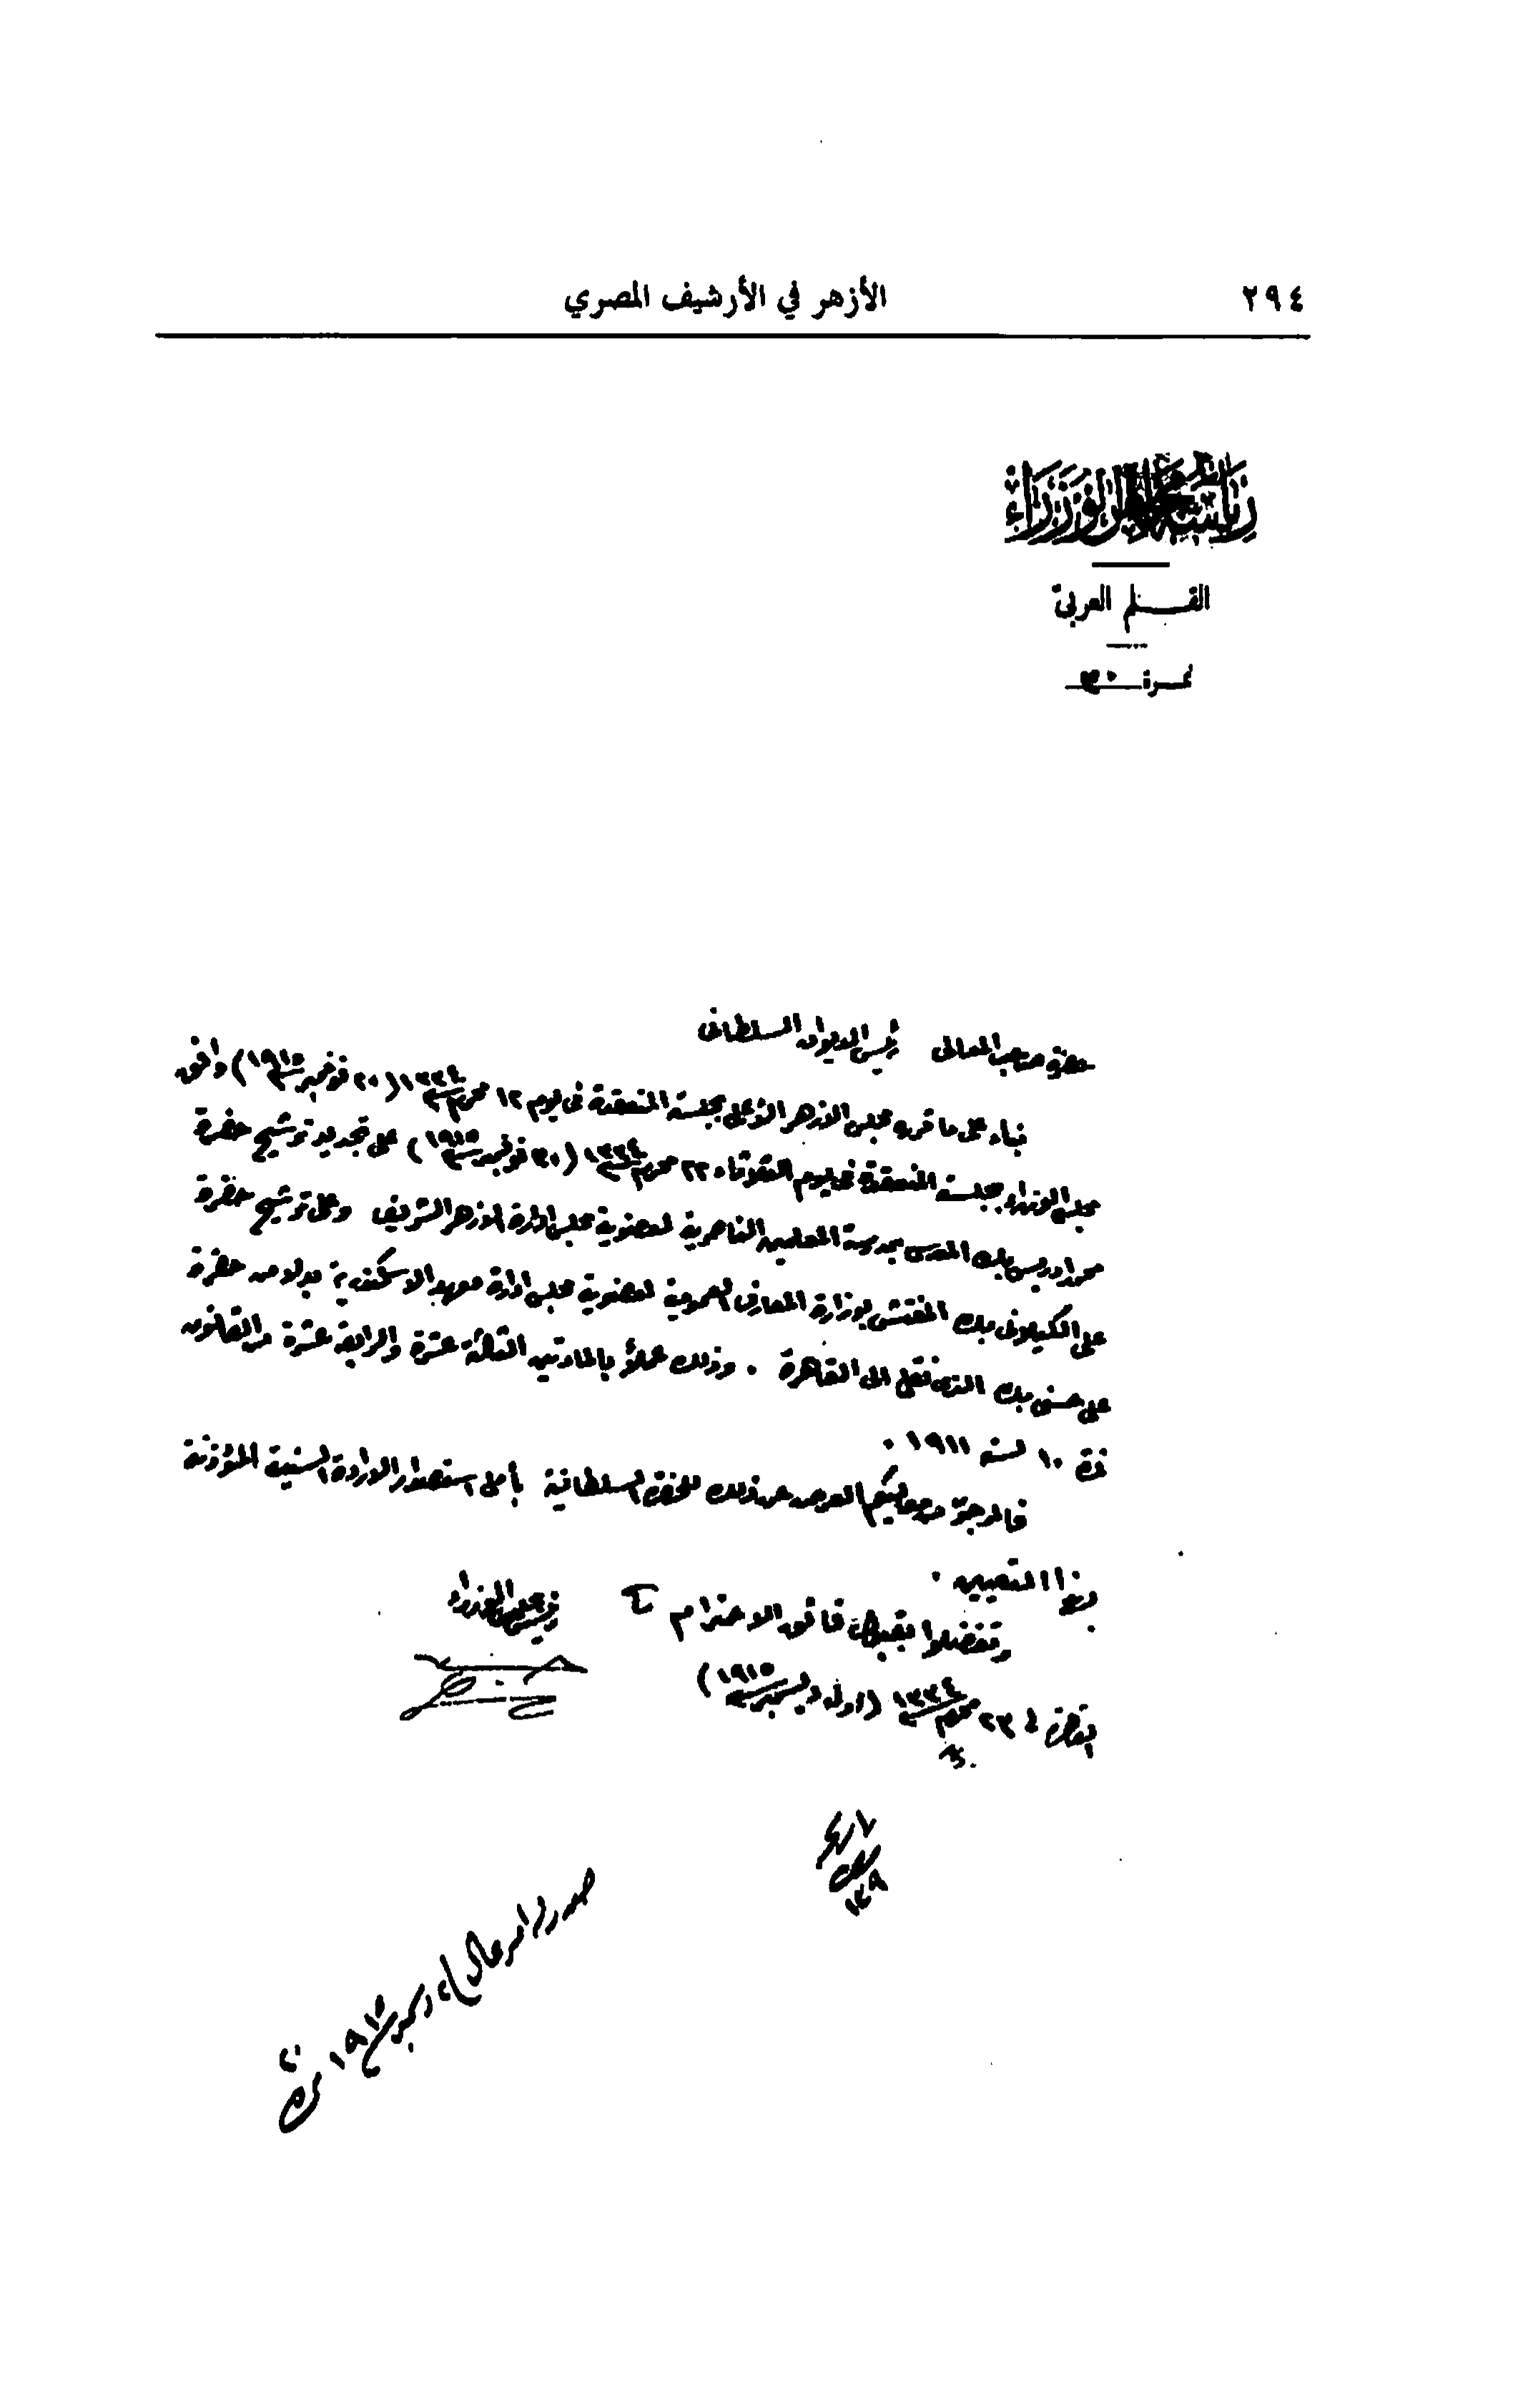 ٢٩٤
الأزهر في الأرشيف المصري
رياسة مجلس الوزراء
القلم العربى
نمرة ٣٠
حضرة صاحب المعالى رئيس الديوان السلطانى
بناء على ما قرره مجلس الازهر الأعلى بجلسته المنعقدة فى يوم ١٢ محرم سنة ١٣٣٤ (٢٠ نوفمبر سنة ١٩١٥) وافق
مجلس الوزراء بجلسته المنعقدة فى يوم الثلاثاء ٢٢ محرم سنة ١٣٣٤ (٣٠ نوفمبر سنة ١٩١٥) على تجديد ترشيح حضرة
محمد ادريس بك المدرس بمدرسة المعلمين الناصرية لعضوية مجلس ادارة الازهر الشريف وعلى ترشيح حضرة
على الكيلانى بك المفتش بوزارة المعارف العمومية لعضوية مجلس ادارة معهد الاسكندرية بدلا من حضرة
على حسنى بك الذى نقل الى القاهرة . وذلك عملاً بالمادتين الثالثة عشرة والرابعة عشرة من القانون
نمرة ١٠ لسنة ١٩١١ .
فالمرجو من معاليكم العرض عن ذلك للحضرة السلطانية بأمل استصدار الارادة السنية المؤذنة
بهذا التعيين .
وتفضلوا بقبول فائق الاحترام
رئيس مجلس الوزراء
القاهرة فى ٢٣ محرم سنة ١٣٣٤ (اول ديسمبر سنة ١٩١٥)
١٣٩
صدر امر عال ديسمبر سنة ١٩١٥